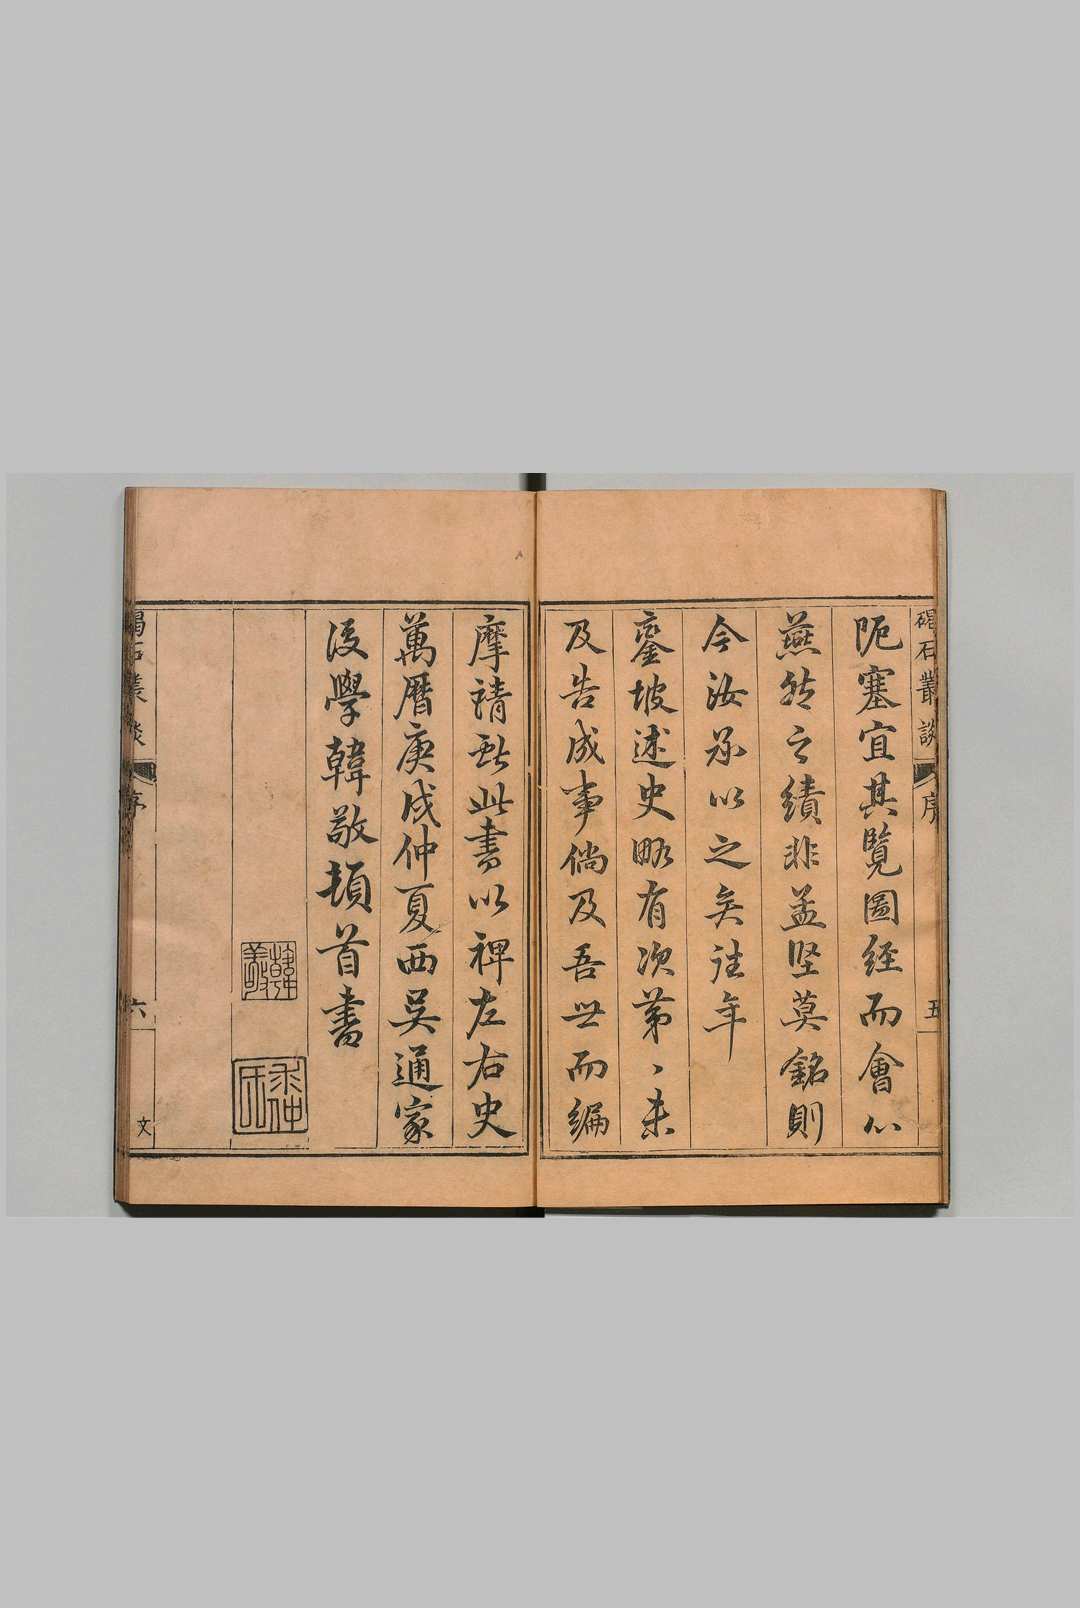 碣石叢談
序
五
阨塞宜其覽圖經而會心
燕然之績非孟堅莫銘則
今汝
以之矣往年
鑾坡述史略有次第、未
及告成事倘及吾世而編
摩請
此書以裨左右史
萬曆庚戌仲夏西吳通家
後學韓敬頓首書
韓敬
求仲氏
碣石叢談
序
六
文